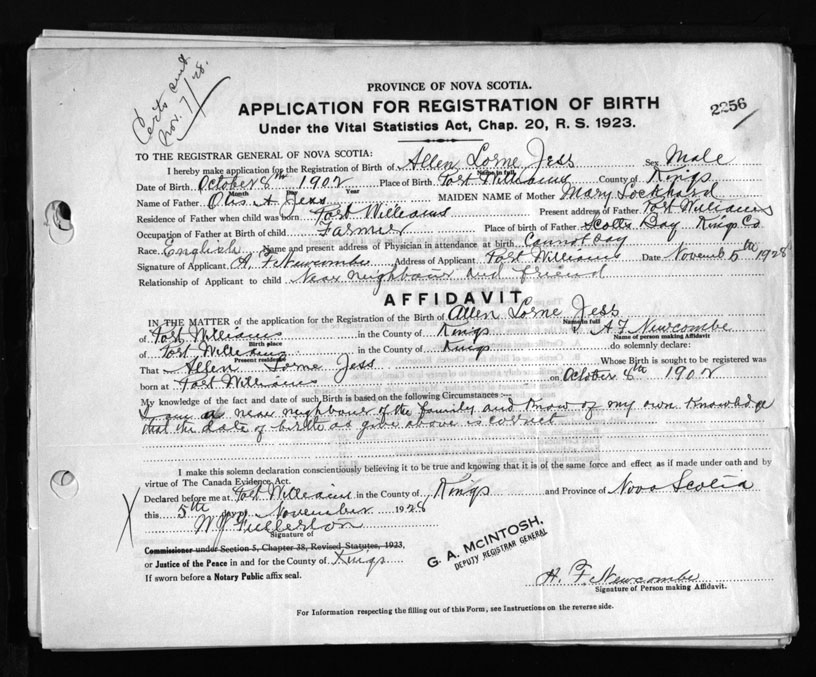 Certs sent.
Nov. 7/28.
PROVINCE OF NOVA SCOTIA.
APPLICATION FOR REGISTRATION OF BIRTH
2256
Under the Vital Statistics Act, Chap. 20, R. S. 1923.
TO THE REGISTRAR GENERAL OF NOVA SCOTIA:
I hereby make application for the Registration of Birth of Allen Lorne Jess Sex Male
Name in full
Date of Birth October 8th 1902 Place of Birth Port Williams County of Kings
Month Day Year
Name of Father Otis A Jess MAIDEN NAME of Mother Mary Lockhard
Residence of Father when child was born Port Williams Present address of Father Port Williams
Occupation of Father at Birth of child Farmer Place of birth of Father Scotts Bay Kings Co
Race English Name and present address of Physician in attendance at birth Cannot say
Signature of Applicant A. F. Newcombe Address of Applicant Port Williams Date Novemb 5th 1928
Relationship of Applicant to child Near neighbour and friend
AFFIDAVIT
IN THE MATTER of the application for the Registration of the Birth of Allen Lorne Jess
Name in full
of Port Williams in the County of Kings I A F Newcombe
Birth place Name of person making Affidavit
of Port Williams in the County of Kings do solemnly declare:
Present residence
That Allen Lorne Jess Whose Birth is sought to be registered was
born at Port Williams on October 8th 1902
My knowledge of the fact and date of such Birth is based on the following Circumstances:—
I am a near neighbour of the family and know of my own knowledge
that the date of birth as give above is correct
I make this solemn declaration conscientiously believing it to be true and knowing that it is of the same force and effect as if made under oath and by
virtue of The Canada Evidence Act.
Declared before me at Port Williams in the County of Kings and Province of Nova Scotia
this 5th November 1928
W J Fullerton
Signature of
Commissioner under Section 5, Chapter 38, Revised Statutes, 1923,
or Justice of the Peace in and for the County of Kings
If sworn before a Notary Public affix seal.
G. A. McINTOSH,
DEPUTY REGISTRAR GENERAL
A. F. Newcombe
Signature of Person making Affidavit.
For Information respecting the filling out of this Form, see Instructions on the reverse side.